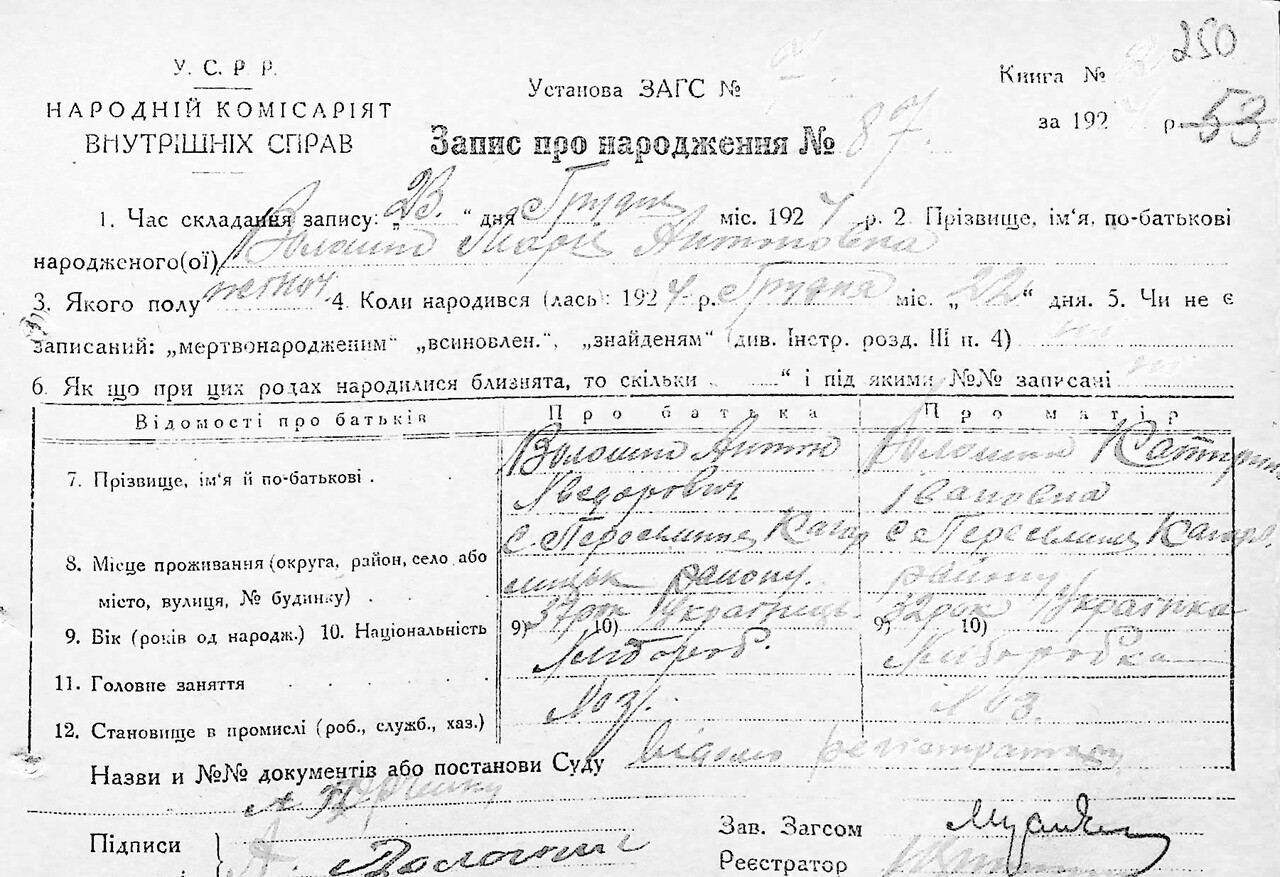 250
У. С. Р. Р.
НАРОДНІЙ КОМІСАРІЯТ
ВНУТРІШНІХ СПРАВ
Установа ЗАГС №
Книга №
за 1924 р. 53
Запис про народження № 87.
1. Час складання запису: „23.“ дня Грудня міс. 1924 р. 2. Прізвище, ім‘я, по-батькові
народженого(ої) Волошин Марія Антоновна
3. Якого полу 4. Коли народився (лась): 1924 р. Грудня міс. „22“ дня. 5. Чи не є
записаний: „мертвонародженим“ „всиновлен.“, „знайденям“ (див. Інстр. розд. III п. 4) ні
6. Як що при цих родах народилися близнята, то скільки „ “ і під якими №№ записані ні
Відомості про батьків Про батька Про матір
7. Прізвище, ім‘я й по-батькові . Волошин Антон Волошин Катерина
Хведорович Івановна
8. Місце проживання (округа, район, село або с. Пероселиця с. Переселиця
місто, вулиця, № будинку) . . району. району
9. Вік (років од народж.) 10. Національність 9) 37 рок 10) Українець 9) 32 рок 10) Українка
11. Головне заняття Хлібороб. Хліборобка
12. Становище в промислі (роб., служб., хаз.) Хоз. Хоз.
Назви и №№ документів або постанови Суду
Підписи А. Волошин
Зав. Загсом
Реєстратор